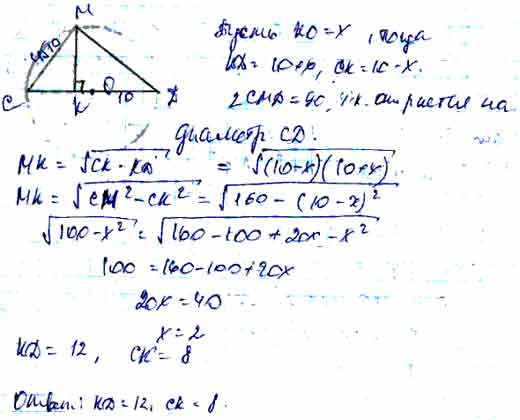 M
4√10
C
K
O
10
D
Пусть KO = x, тогда
KD = 10+x, CK = 10-x.
∠CMD = 90, т.к. опирается на
диаметр CD.
MK = √CK · KD = √(10-x)(10+x)
MK = √CM² - CK² = √160 - (10-x)²
√100-x² = √160-100+20x-x²
100 = 160-100+20x
20x = 40
x = 2
KD = 12, CK = 8
Ответ: KD = 12, CK = 8.